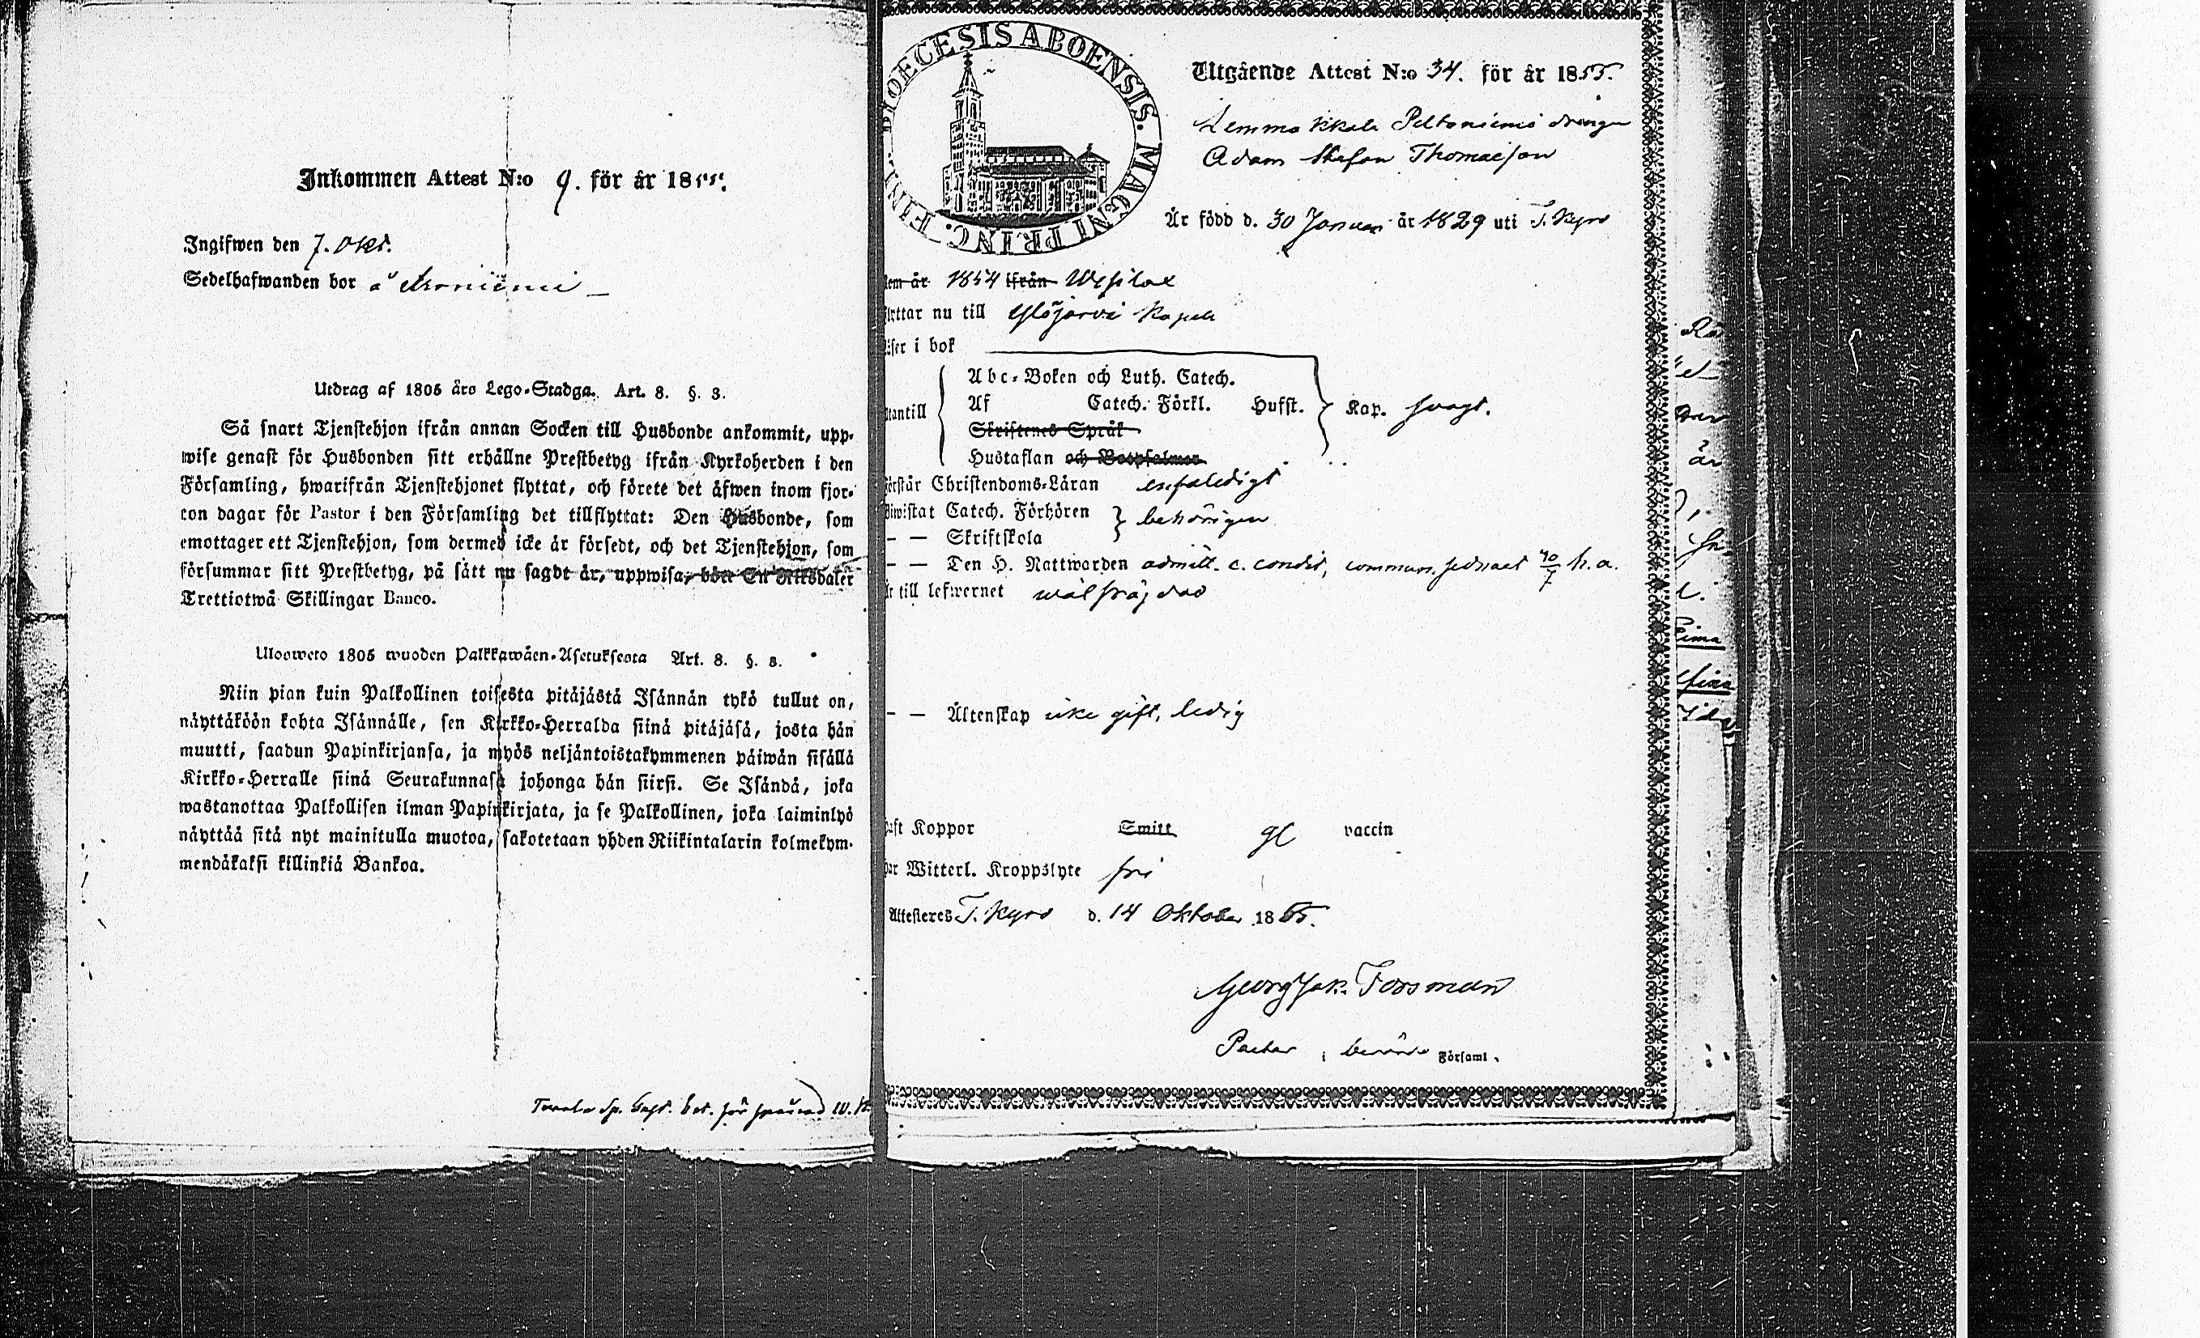 Inkommen Attest N:o 9. för år 1855.
Ingifwen den 7. Okt.
Sedelhafwanden bor å
Utdrag af 1805 års Lego-Stadga. Art. 8. §. 3.
Så snart Tjenstehjon ifrån annan Socken till Husbonde ankommit, upp-
wise genast för Husbonden sitt erhållne Prestbetyg ifrån Kyrkoherden i den
Församling, hwarifrån Tjenstehjonet flyttat, och förete det äfwen inom fjor-
ton dagar för Pastor i den Församling det tillflyttat: Den Husbonde, som
emottager ett Tjenstehjon, som dermed icke är försedt, och det Tjenstehjon, som
försummar sitt Prestbetyg, på sätt nu sagdt är, uppwisa, böte En Riksdaler
Trettiotwå Skillingar Banco.
Ulosweto 1805 wuoden Palkkawäen-Asetuksesta Art. 8. §. 3.
Niin pian kuin Palkollinen toisesta pitäjästä Isännän tykö tullut on,
näyttäköön kohta Isännälle, sen Kirkko-Herralda siinä pitäjäsä, josta hän
muutti, saadun Papinkirjansa, ja myös neljäntoistakymmenen päiwän sisällä
Kirkko-Herralle siinä Seurakunnasa johonga hän siirsi. Se Isändä, joka
wastanottaa Palkollisen ilman Papinkirjata, ja se Palkollinen, joka laiminlyö
näyttää sitä nyt mainitulla muotoa, sakotetaan yhden Riikintalarin kolmekym-
mendäkaksi killinkiä Bankoa.
DIOECESIS ABOENSIS. MAGNI PRINC. FINL.
Utgående Attest N:o 34. för år 1855.
Lemmakkala Peltoniemi drengen
Adam Stefan Thomasson
Är född d. 30 Januari år 1829 uti T. Kyro
kom år 1854 ifrån Wesilax
flyttar nu till Ylöjärvi Kapell
läser i bok
utantill
Abc-Boken och Luth. Catech.
Af Catech. Förkl. Hufst. Kap. svagt.
Skriftenes Språk
Hustaflan och Botpsalmer
förstår Christendoms-Läran enfaldigt
biwistat Catech. Förhören behörigen
– – Skriftskola
– – Den H. Nattwarden admitt. c. condit, commun. sednast h. a.
är till lefwernet wälfräjdad
– – Äktenskap icke gift, ledig
haft Koppor Smitt gl vaccin
har Witterl. Kroppslyte fri
Attesteres T. Kyro d. 14 Oktober 1855.
Georg Jak. Forsman
Pastor i berörde Församl.